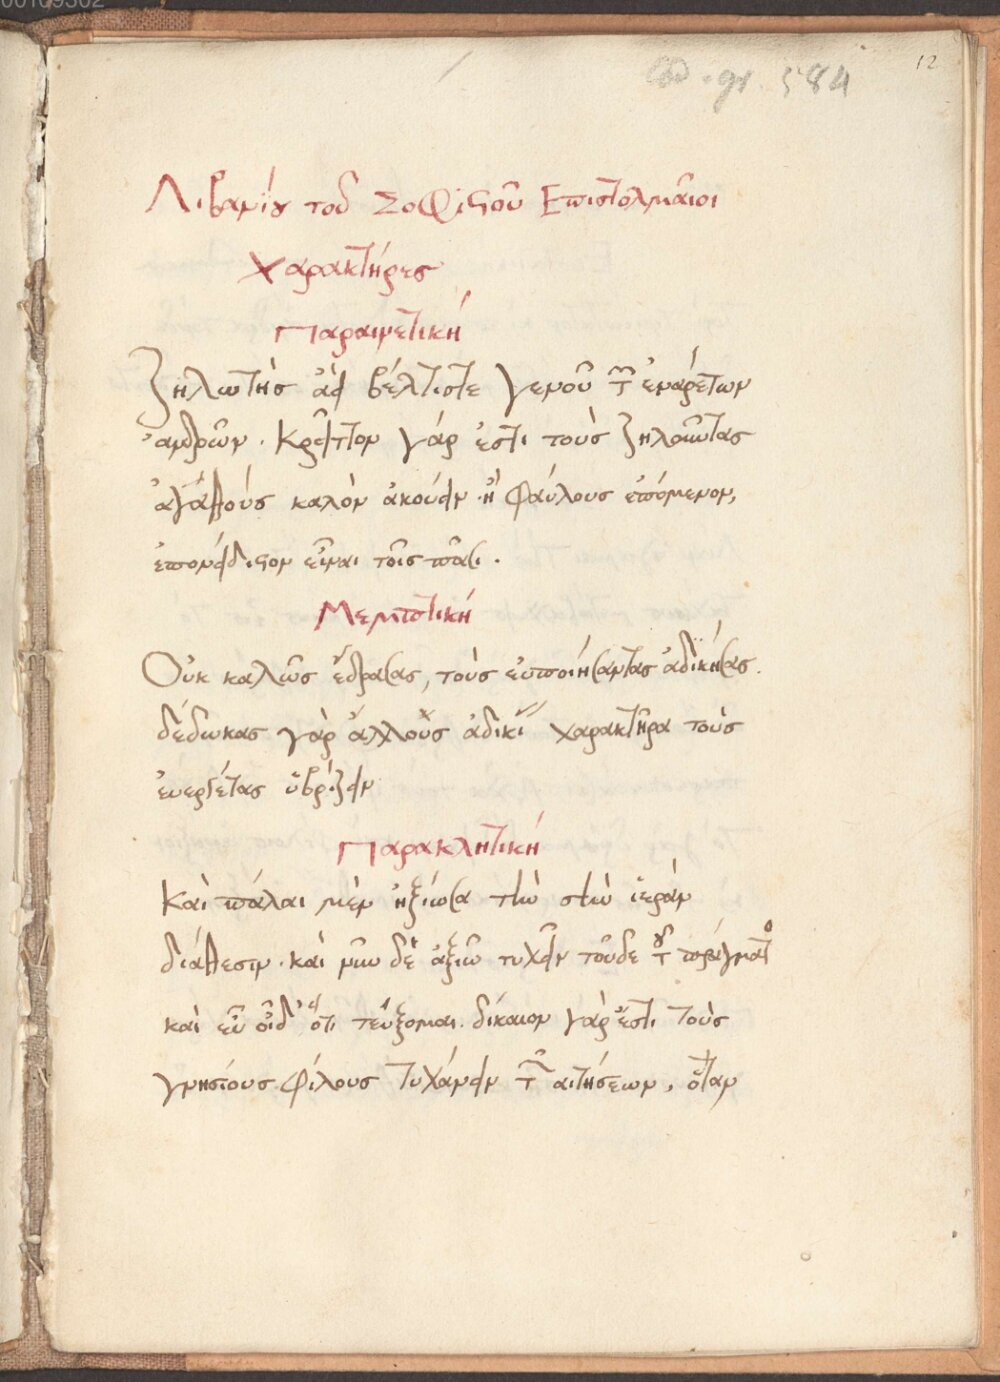 00109302
12
Cod. gr. 584
Λιβανίου τοῦ Σοφιστοῦ Επιστολιμαῖοι
Χαρακτήρες
Παραινετική
Ζηλωτὴς ἀεὶ βέλτιστε γενοῦ τῶν ἐναρέτων
ἀνδρῶν. Κρεῖττον γάρ ἐστι τοὺς ζηλοῦντας
ἀγαθοὺς καλὸν ἀκούειν ἢ φαύλους ἑπόμενον,
ἐπονείδιστον εἶναι τοῖς πᾶσι.
Μεμπτική
Οὐκ καλῶς ἔδρασας, τοὺς εὐποιήσαντας ἀδικήσας.
δέδωκας γὰρ ἄλλοις ἀδικί χαρακτῆρα τοὺς
ἐυεργέτας ὑβρίζειν
Παρακλητική
Καὶ πάλαι μὲν ἠξίωσα τὴν σὴν ἱερὰν
διάθεσιν. καὶ νῦν δὲ ἀξιῶ τυχεῖν τοῦδε τοῦ πράγματος
καὶ εὖ οἶδ' ὅτι τεύξομαι. δίκαιον γάρ ἐστι τοὺς
γνησίους φίλους τυχάνειν τῶν αιτήσεων, ὅταν